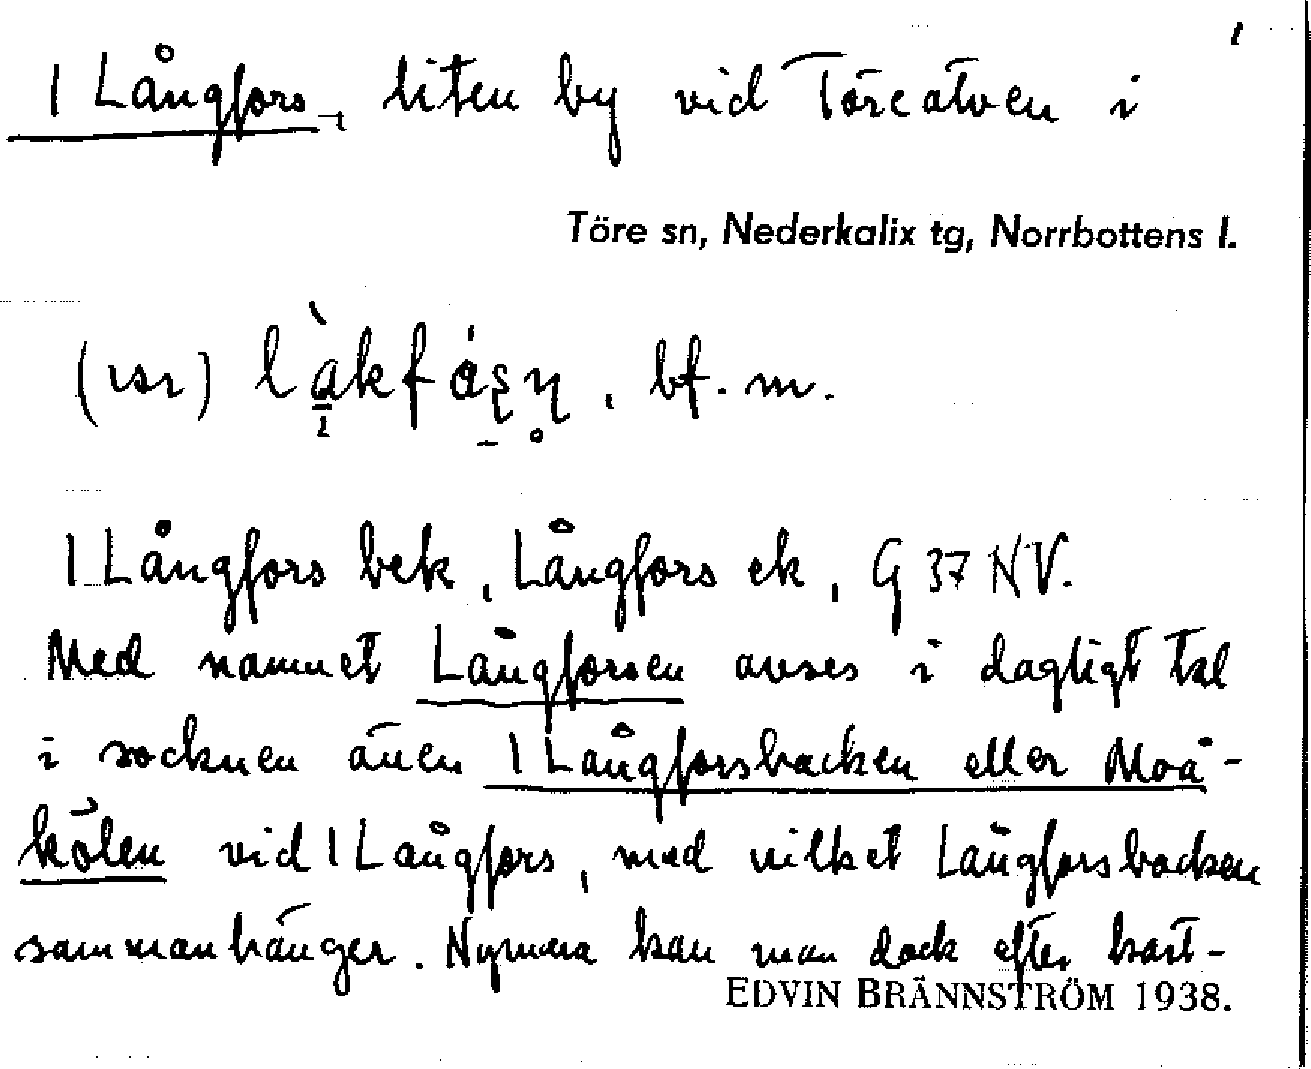 1 Långfors, liten by vid Töreälven i
Töre sn, Nederkalix tg, Norrbottens l.
bf. m.
1 Långfors bek, Långfors ek, G 37 NV.
Med namnet Långforsen avses i dagligt tal
i socknen även 1 Långforsbacken eller Moå-
kölen vid 1 Långfors, med vilket Långforsbacken
sammanhänger. Numera kan man dock efter kart-
EDVIN BRÄNNSTRÖM 1938.